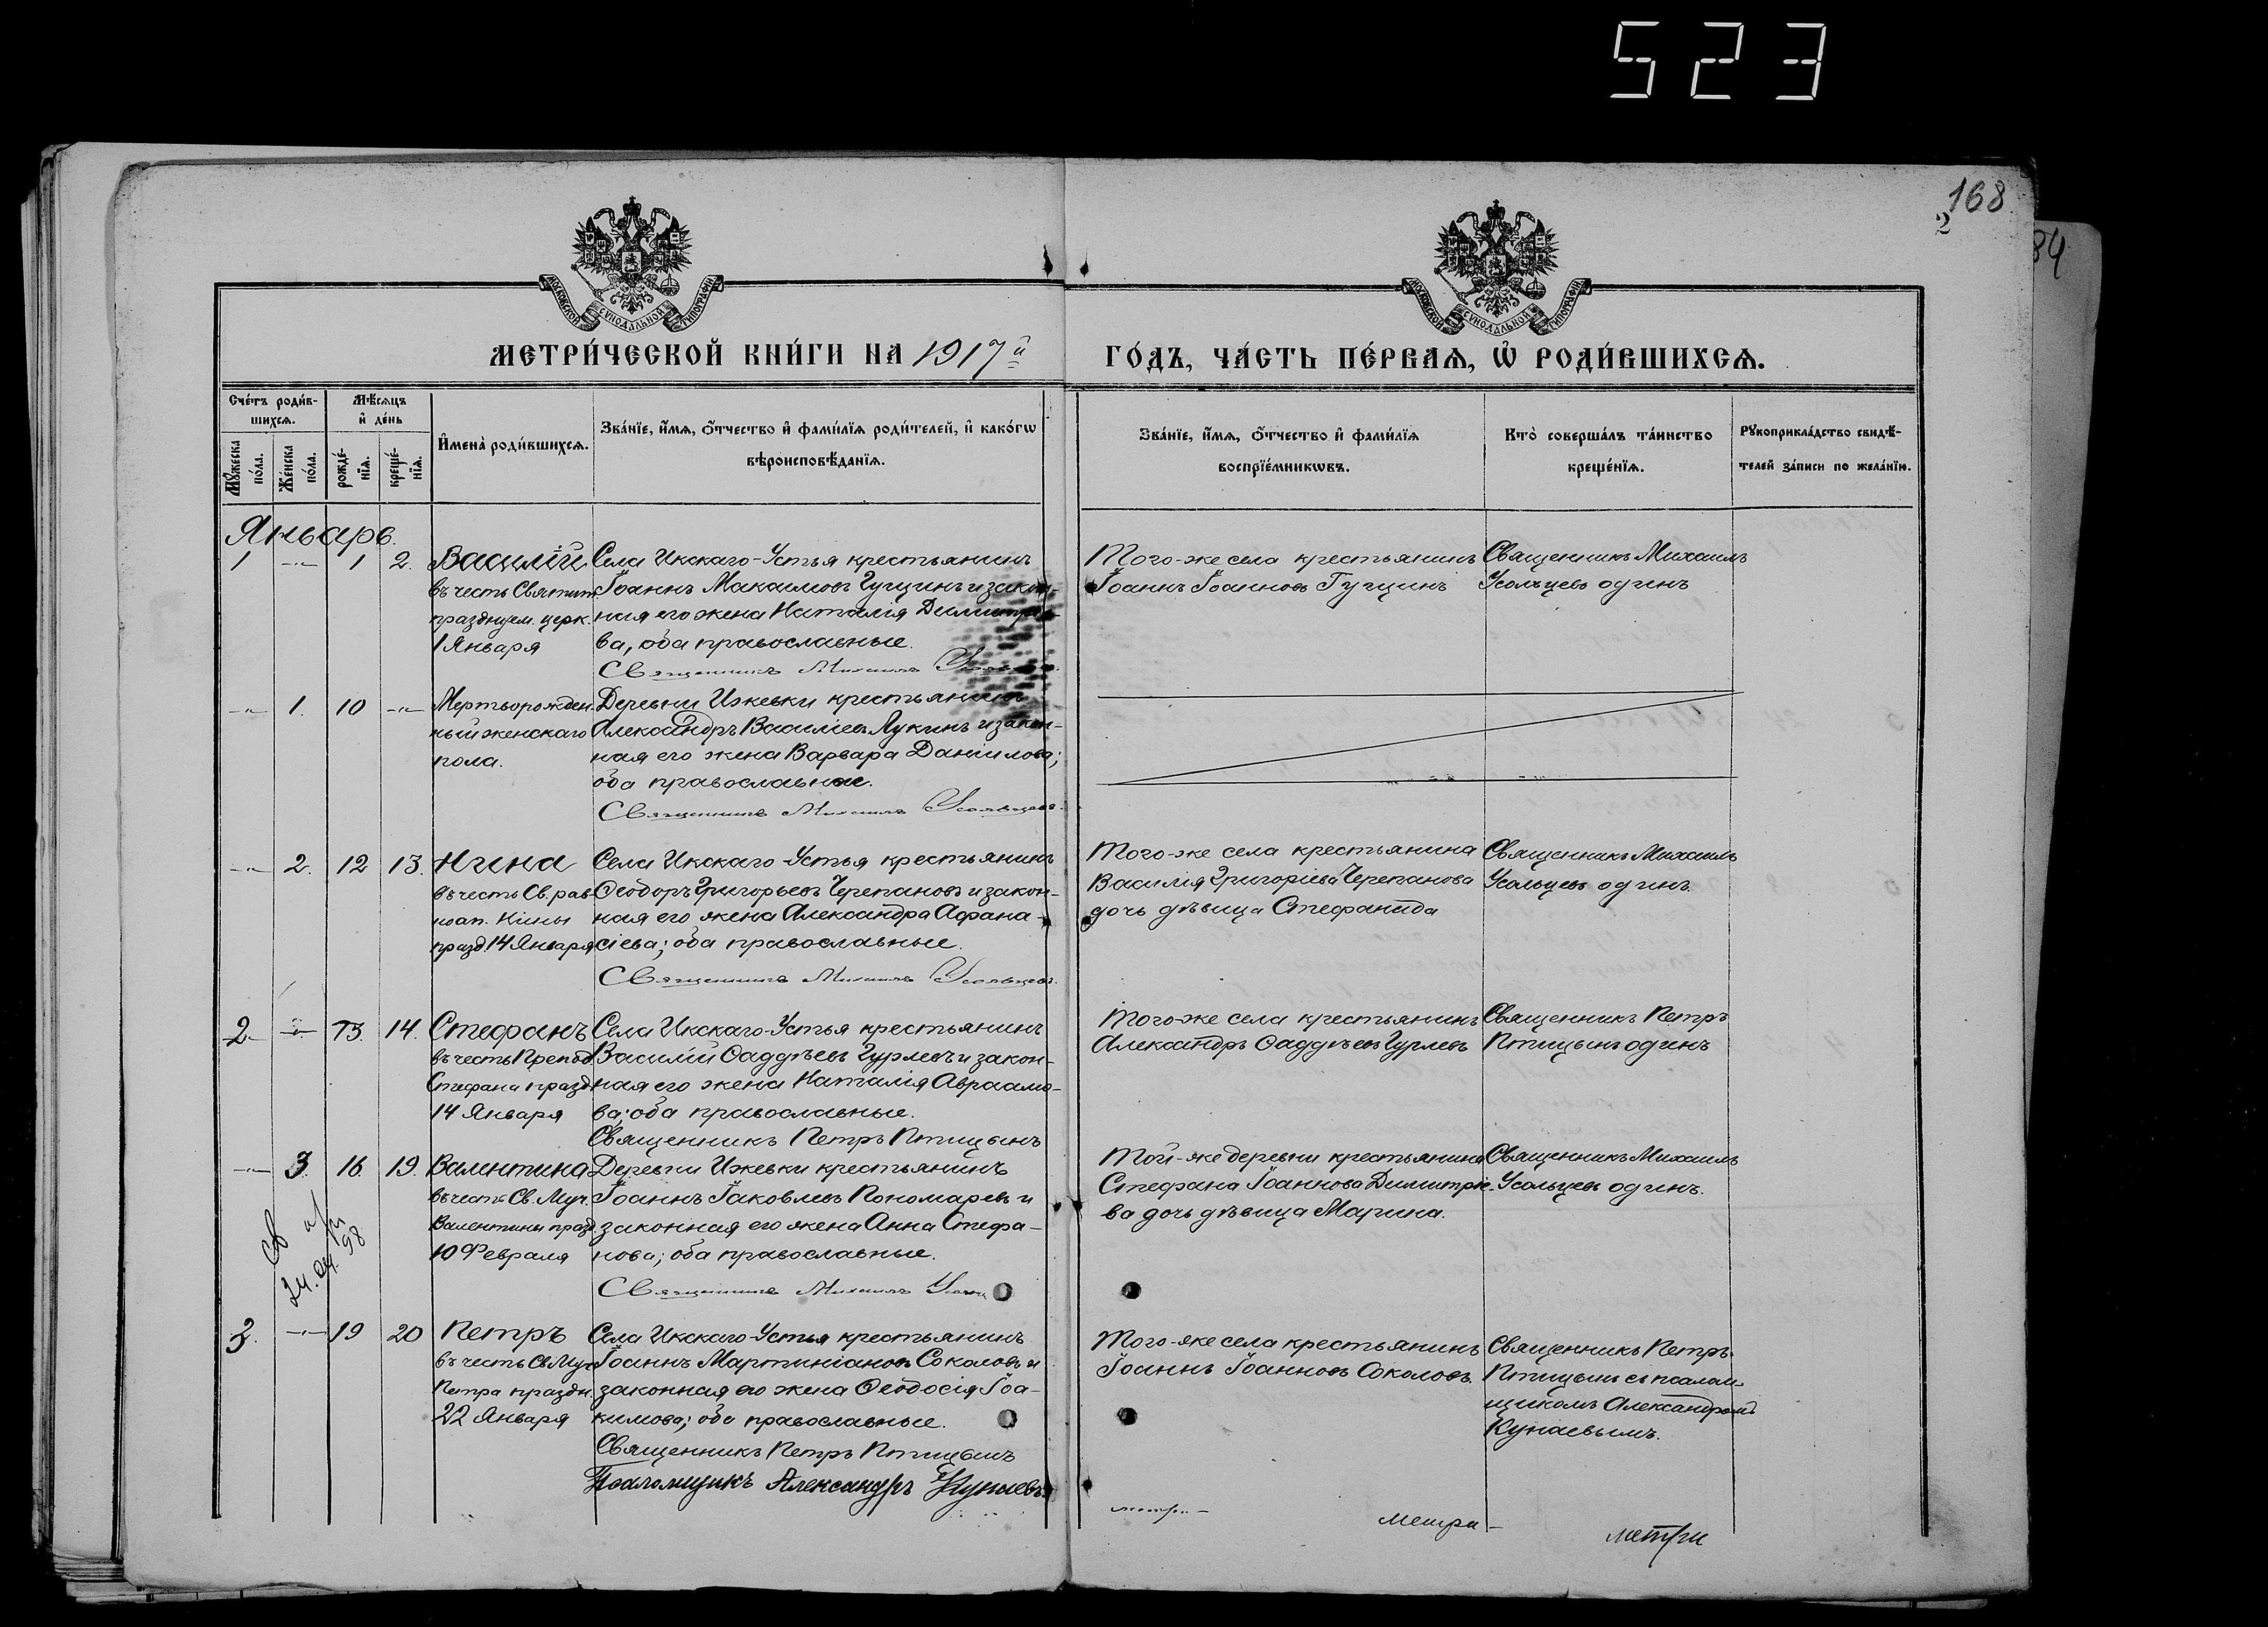 523
168
2
84
МОСКОВСКОЙ СУНОДАЛЬНОЙ ТИПОГРАФІИ
МОСКОВСКОЙ СУНОДАЛЬНОЙ ТИПОГРАФІИ
МЕТРИ́ЧЕСКОЙ КНИ́ГИ НА 1917й
ГО́ДЪ, ЧА́СТЬ ПЕ́РВАѦ, Ѽ РОДИ́ВШИХСѦ.
Сче́тъ роди́в-
шихсѧ.
Мѣ́сѧцъ
и҆ де́нь
Мꙋ́жеска
по́ла.
Же́нска
по́ла.
рожде́-
нїѧ.
креще́-
нїѧ.
И҆мена̀ роди́вшихсѧ.
Зва́нїе, и҆́мѧ, ѻ҆́тчество и҆ фами́лїѧ роди́телей, и҆ како́гѡ
вѣроисповѣ́данїѧ.
Зва́нїе, и҆́мѧ, ѻ҆́тчество и҆ фами́лїѧ
воспрїе́мникѡвъ.
Кто̀ соверша́лъ та́инство
креще́нїѧ.
Рꙋкоприкла́дство свидѣ́-
телей за́писи по жела́нїю.
Январь.
1 -"- 1 2.
Василій
въ честь Святит.
празднуем. церк.
1 Января
Села Икскаго-Устья крестьянинъ
Іоаннъ Максимовъ Гущинъ и закон-
ная его жена Наталія Димитріе-
ва, оба православные.
Священникъ Михаилъ Усольцевъ.
Того-же села крестьянинъ
Іоаннъ Іоанновъ Гущинъ
Священникъ Михаилъ
Усольцевъ одинъ
-"- 1. 10 -"-
Мертворожден-
ный женскаго
пола.
Деревни Ижевки крестьянинъ
Александръ Василіевъ Лукинъ и закон-
ная его жена Варвара Даніилова;
оба православные.
Священникъ Михаилъ Усольцевъ.
-"- 2. 12 13.
Нина
въ честь Св. рав-
ноап. Нины
празд. 14 Января
Села Икскаго-Устья крестьянинъ
Ѳеодоръ Григорьевъ Черепановъ и закон-
ная его жена Александра Афана-
сіева; оба православные.
Священникъ Михаилъ Усольцевъ.
Того-же села крестьянина
Василія Григоріева Черепанова
дочь дѣвица Стефанида
Священникъ Михаилъ
Усольцевъ одинъ.
2. -"- 13. 14.
Стефанъ
въ честь Препод.
Стефана празд.
14 Января
Села Икскаго-Устья крестьянинъ
Василій Ѳаддѣевъ Гурлевъ и закон-
ная его жена Наталія Авраамо-
ва; оба православные.
Священникъ Петръ Птицынъ
Того-же села крестьянинъ
Александръ Ѳаддѣевъ Гурлевъ
Священникъ Петръ
Птицынъ одинъ
-"- 3. 16. 19.
Валентина
въ честь Св. Муч.
Валентины празд.
10 Февраля
Деревни Ижевки крестьянинъ
Іоаннъ Іаковлевъ Пономаревъ и
законная его жена Анна Стефа-
нова; оба православные.
Священникъ Михаилъ
Той-же деревни крестьянина
Стефана Іоаннова Димитріе-
ва дочь дѣвица Марина.
Священникъ Михаилъ
Усольцевъ одинъ.
3. -"- 19 20
Петръ
въ честь Св. Муч.
Петра праздн.
22 Января
Села Икскаго-Устья крестьянинъ
Іоаннъ Мартиніановъ Соколовъ и
законная его жена Ѳеодосія Іоа-
кимова; оба православные.
Священникъ Петръ Птицынъ
Псаломщикъ Александръ Кунаевъ.
Того-же села крестьянинъ
Іоаннъ Іоанновъ Соколовъ.
Священникъ Петръ
Птицынъ съ псалом-
щикомъ Александромъ
Кунаевымъ.
метри-
метри-